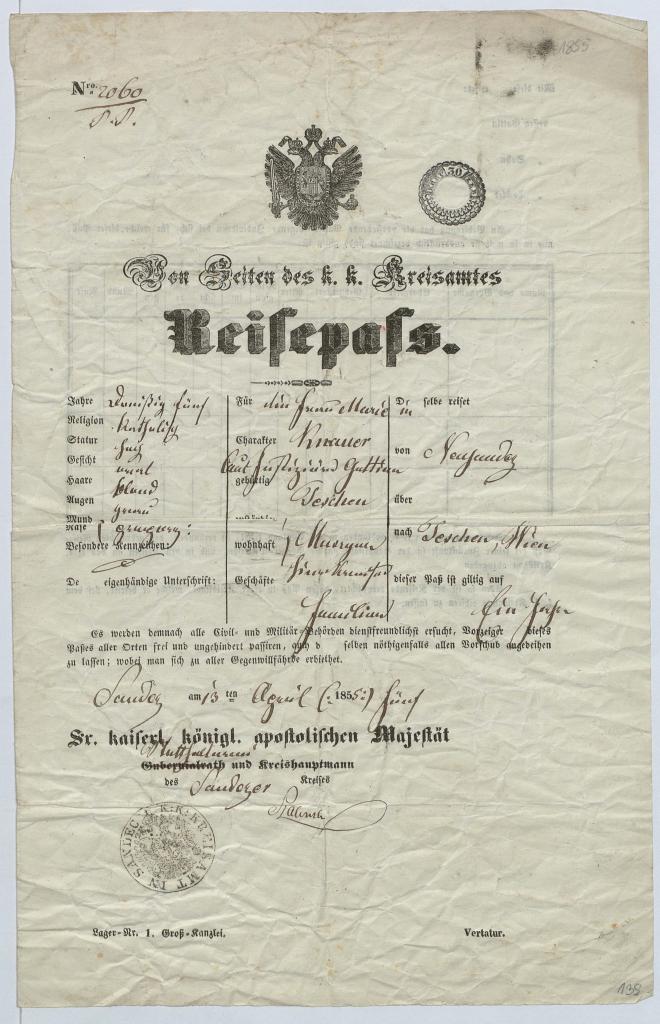 1855
Nro. 2060
30
Von Seiten des k. k. Kreisamtes
Reisepass.
Jahre Dreißig fünf
Religion katholisch
Statur
Gesicht oval
Haare blond
Augen grau
Mund
Nase
Besondere Kennzeichen:
De eigenhändige Unterschrift:
Für die Frau Marie
Charakter Knauer
Gattin
gebürtig Teschen
wohnhaft
Geschäfte
Familien
Die selbe reiset
von Neusandez
über
nach Teschen, Wien
dieser Paß ist giltig auf
Ein Jahr
Es werden demnach alle Civil- und Militär-Behörden dienstfreundlichst ersucht, Vorzeiger dieses
Paßes aller Orten frei und ungehindert passiren, auch d selben nöthigenfalls allen Vorschub angedeihen
zu lassen; wobei man sich zu aller Gegenwillfährde erbiethet.
Sandez am 13 ten April (: 1855 :) fünf
Sr. kaiserl. königl. apostolischen Majestät
Gubernialrath und Kreishauptmann
des Sandezer Kreises
K: K: KREISAMT IN SANDEC
Lager-Nr. 1. Groß-Kanzlei.
Vertatur.
138